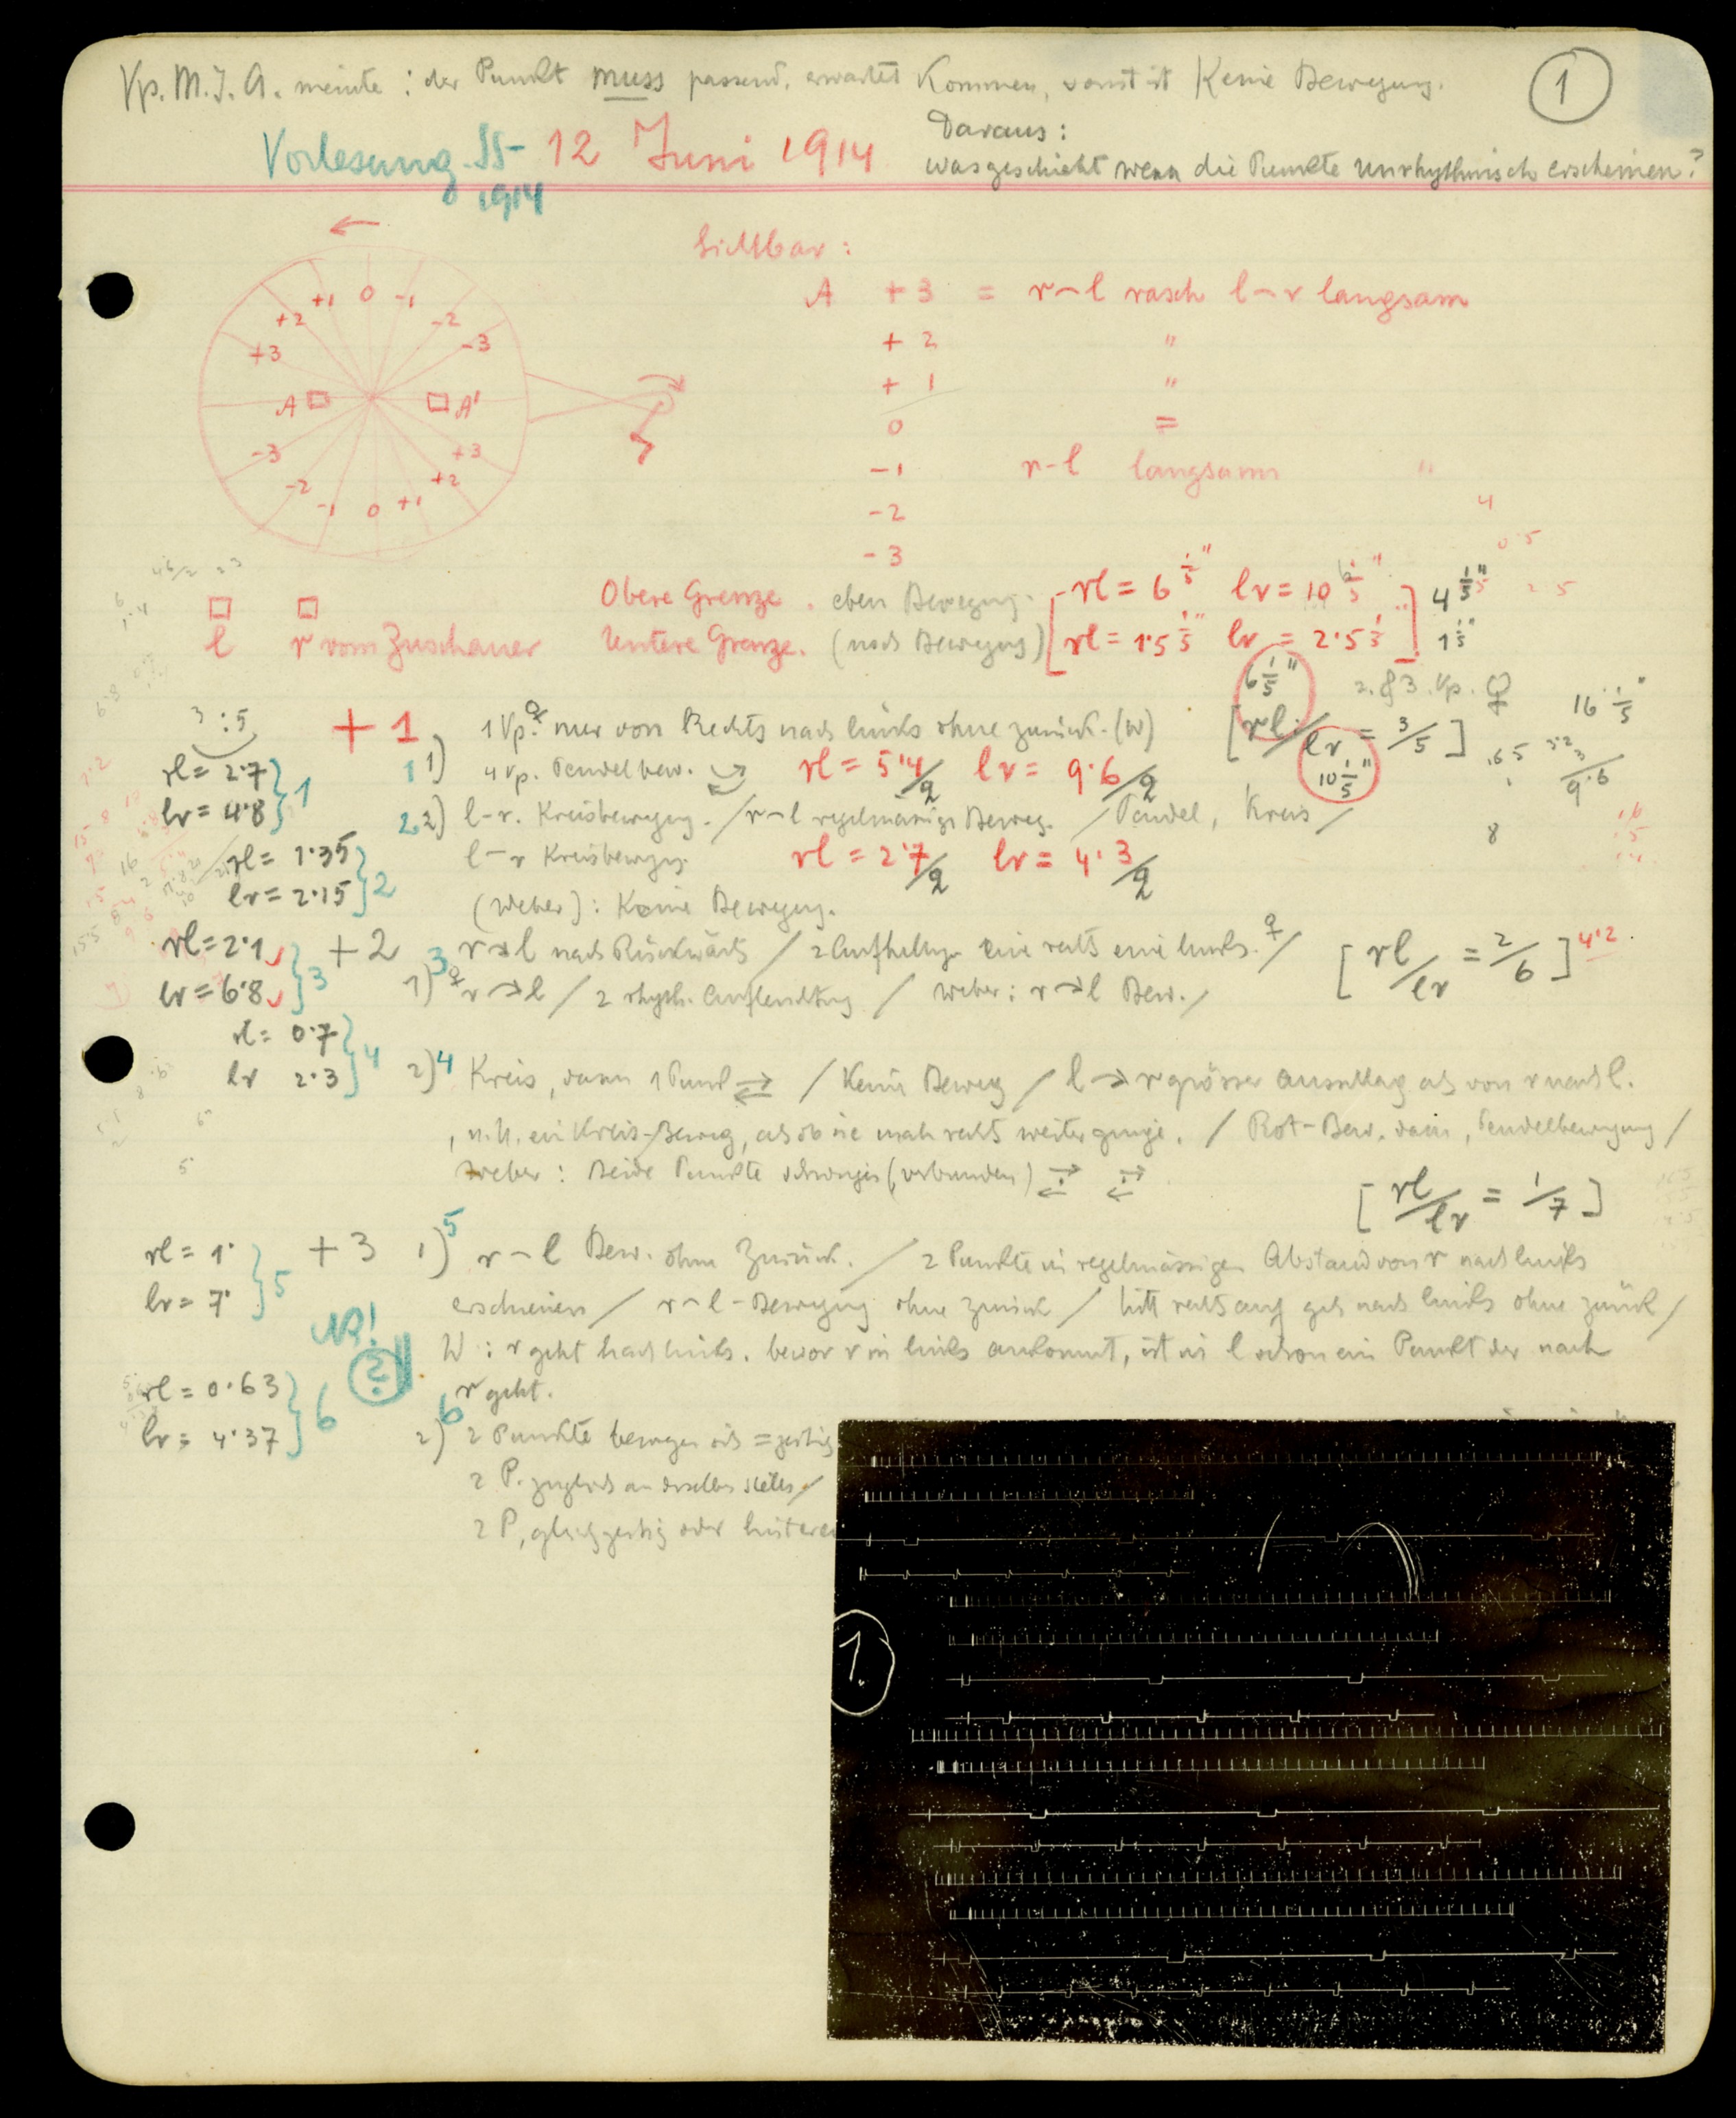 Vp. M.J.A. meinte: der Punkt muss passend, erwartet Kommen, sonst ist Keine Bewegung.
1
Daraus:
Vorlesung SS- 12 Juni 1914
1914
was geschieht wenn die Punkte unrhythmisch erscheinen?
Sichtbar:
+3 +2 +1 0 -1 -2 -3
A A'
-3 -2 -1 0 +1 +2 +3
A +3 = r-l rasch l-r langsam
+2 "
+1 "
0 =
-1 r-l langsam "
-2
-3
4
0.5
Obere Grenze. eben Bewegung. [rl = 6 1/5" lr = 10 1/5"] 4 1/5"
l r vom Zuschauer Untere Grenze. (noch Bewegung) [rl = 1.5 1/5" lr = 2.5 1/5"] 1 1/5"
6 1/5" 2. & 3. Vp. ♀ 16 1/5"
3:5
+1 1 Vp.♀ nur von Rechts nach links ohne zurück. (W) [rl/lr = 3/5]
10 1/5"
rl = 2.7
lr = 4.8 } 1
1 1) 4 Vp. Pendelbew. rl = 5.4/2 lr = 9.6/2
9.6
2 2) l-r. Kreisbewegung. / r-l regelmässige Beweg. / Pendel, Kreis /
8
rl = 1.35
lr = 2.15 } 2
l-r Kreisbewegg. rl = 2.7/2 lr = 4.3/2
(Weber): Keine Bewegung.
rl = 2.1
lr = 6.8 } 3
+2 3 r→l nach Rückwärts / 2 Aufhellgn eine rechts eine links. ♀ / [rl/lr = 2/6] 4.2
1) ♀ r→l / 2 rhyth. / Weber: r→l Bew. /
rl = 0.7
lr 2.3 } 4
2) 4 Kreis, dann 1 Punkt ⇄ / Keine Beweg / l→r grösser Ausschlag als von r nach l.
ein Kreis-Beweg, als ob sie nach rechts weiter ginge. / Rot-Bew. dann, Pendelbewegung /
Weber: Beide Punkte schwingen (verbunden) ⇄ ⇄
[rl/lr = 1/7]
rl = 1.
lr = 7. } 5
+3 1) 5 r-l Bew. ohne Zurück. / 2 Punkte in regelmässigen Abstand von r nach links
erscheinen / r-l-Bewegung ohne zurück / tritt rechts auf geht nach links ohne zurück /
NB!
?
W: r geht nach links. bevor r in links ankommt, ist in l schon ein Punkt der nach
r geht.
rl = 0.63
lr = 4.37 } 6
2) 6 2 Punkte bewegen sich = zeitig
2 P. zugleich an derselben Stelle /
2 P, gleichzeitig oder
1.